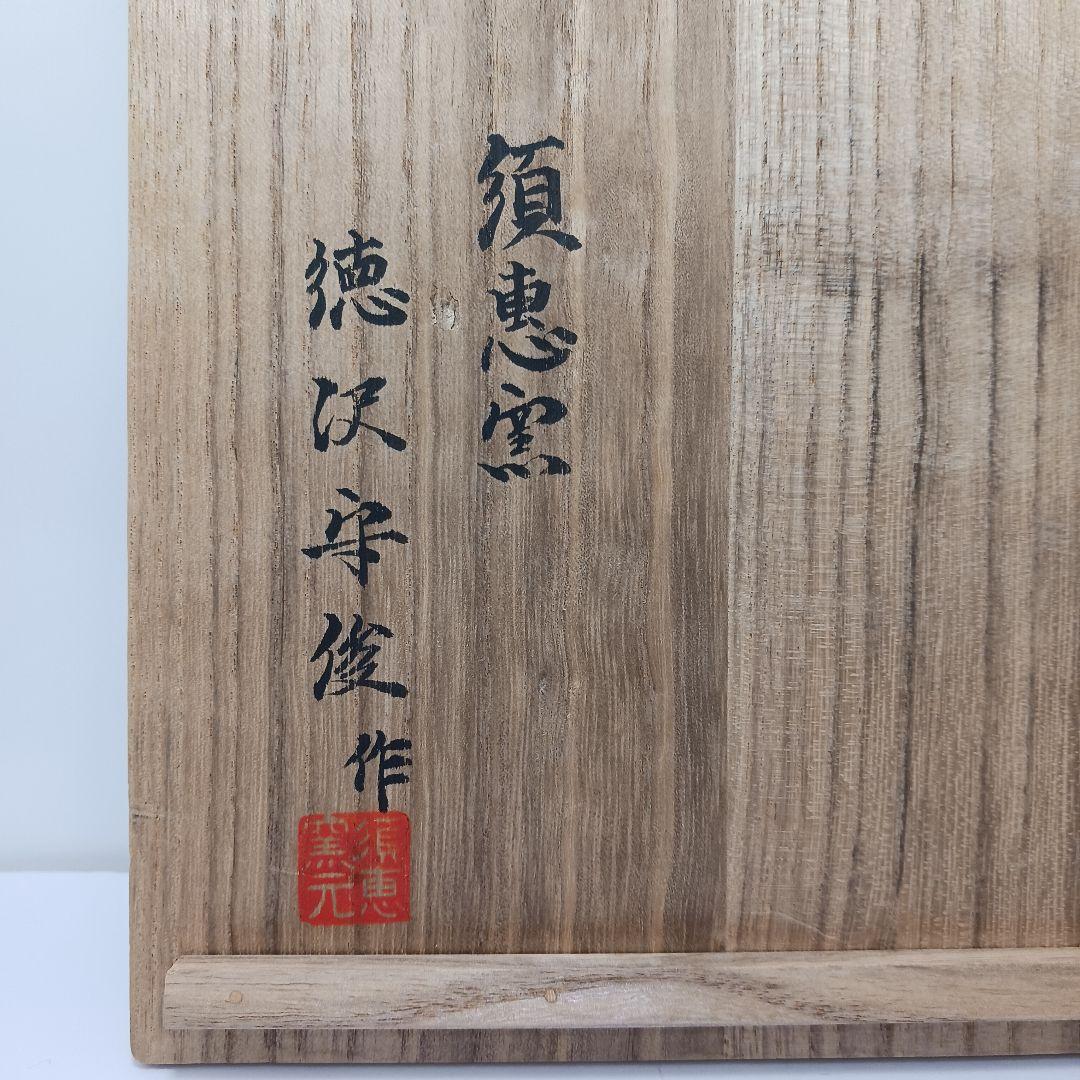 須恵窯
徳沢守俊作
須恵
窯元